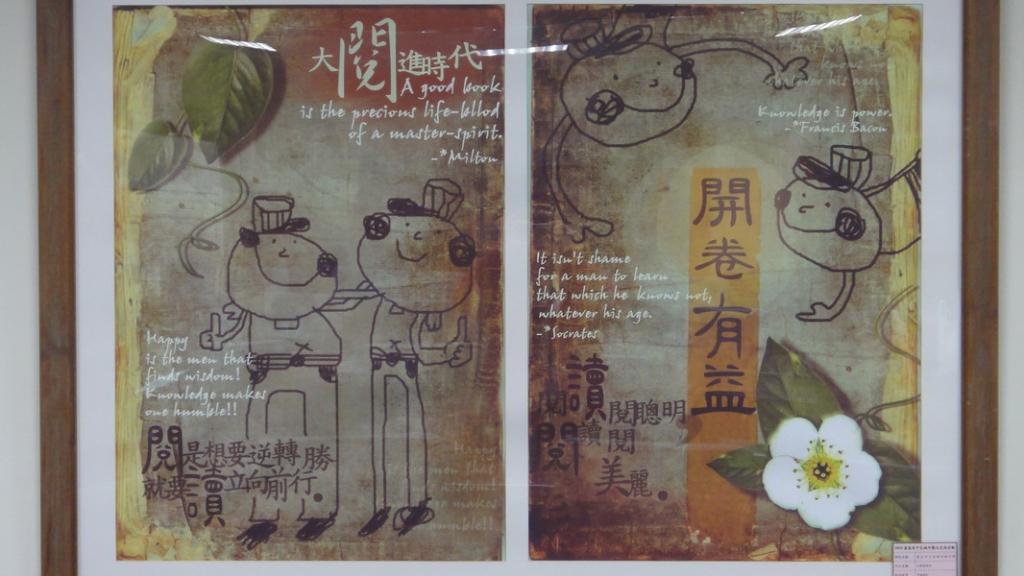 大閱進時代
A good book
is the precious life-bllod
of a master-spirit.
-*Milton
Happy
is the men that
finds wisdom!
Knowledge makes
one humble!!
閱是想要逆轉勝
就要讀立向前行.
men that
wisdom!
makes
humble!!
knows
whatever his age.
Knowledge is power.
-*Francis Bacon
開卷有益
It isn't shame
for a man to learn
that which he knows not,
whatever his age.
-*Socrates
閱讀
閱讀
閱聰明
閱美麗.